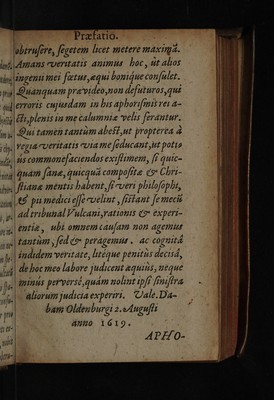 Præfatio.
obtrusere, segetem licet metere maximã.
Amans veritatis animus hoc, ut alios
ingenii mei fœtus, æqui bonique consulet.
Quanquam prævideo, non defuturos, qui
erroris cujusdam in his aphorismis rei a-
cti, plenis in me calumniæ velis ferantur.
Qui tamen tantùm abest, ut propterea à
regia veritatis via me seducant, ut potio
us commonefaciendos existimem, si quic-
quam sanæ, quicquã compositæ & Chri-
stianæ mentis habent, si veri philosophi,
& pii medici esse velint, sistant se mecũ
ad tribunal Vulcani, rationis & experi-
entiæ, ubi omnem causam non agemus
tantùm, sed & peragemus. ac cognitâ
indidem veritate, litéque penitùs decisâ,
de hoc meo labore judicent æquiùs, neque
minùs perversè, quàm nolint ipsi sinistra
aliorum judicia experiri. Vale. Da-
bam Oldenburgi 2. Augusti
anno 1619.
APHO-